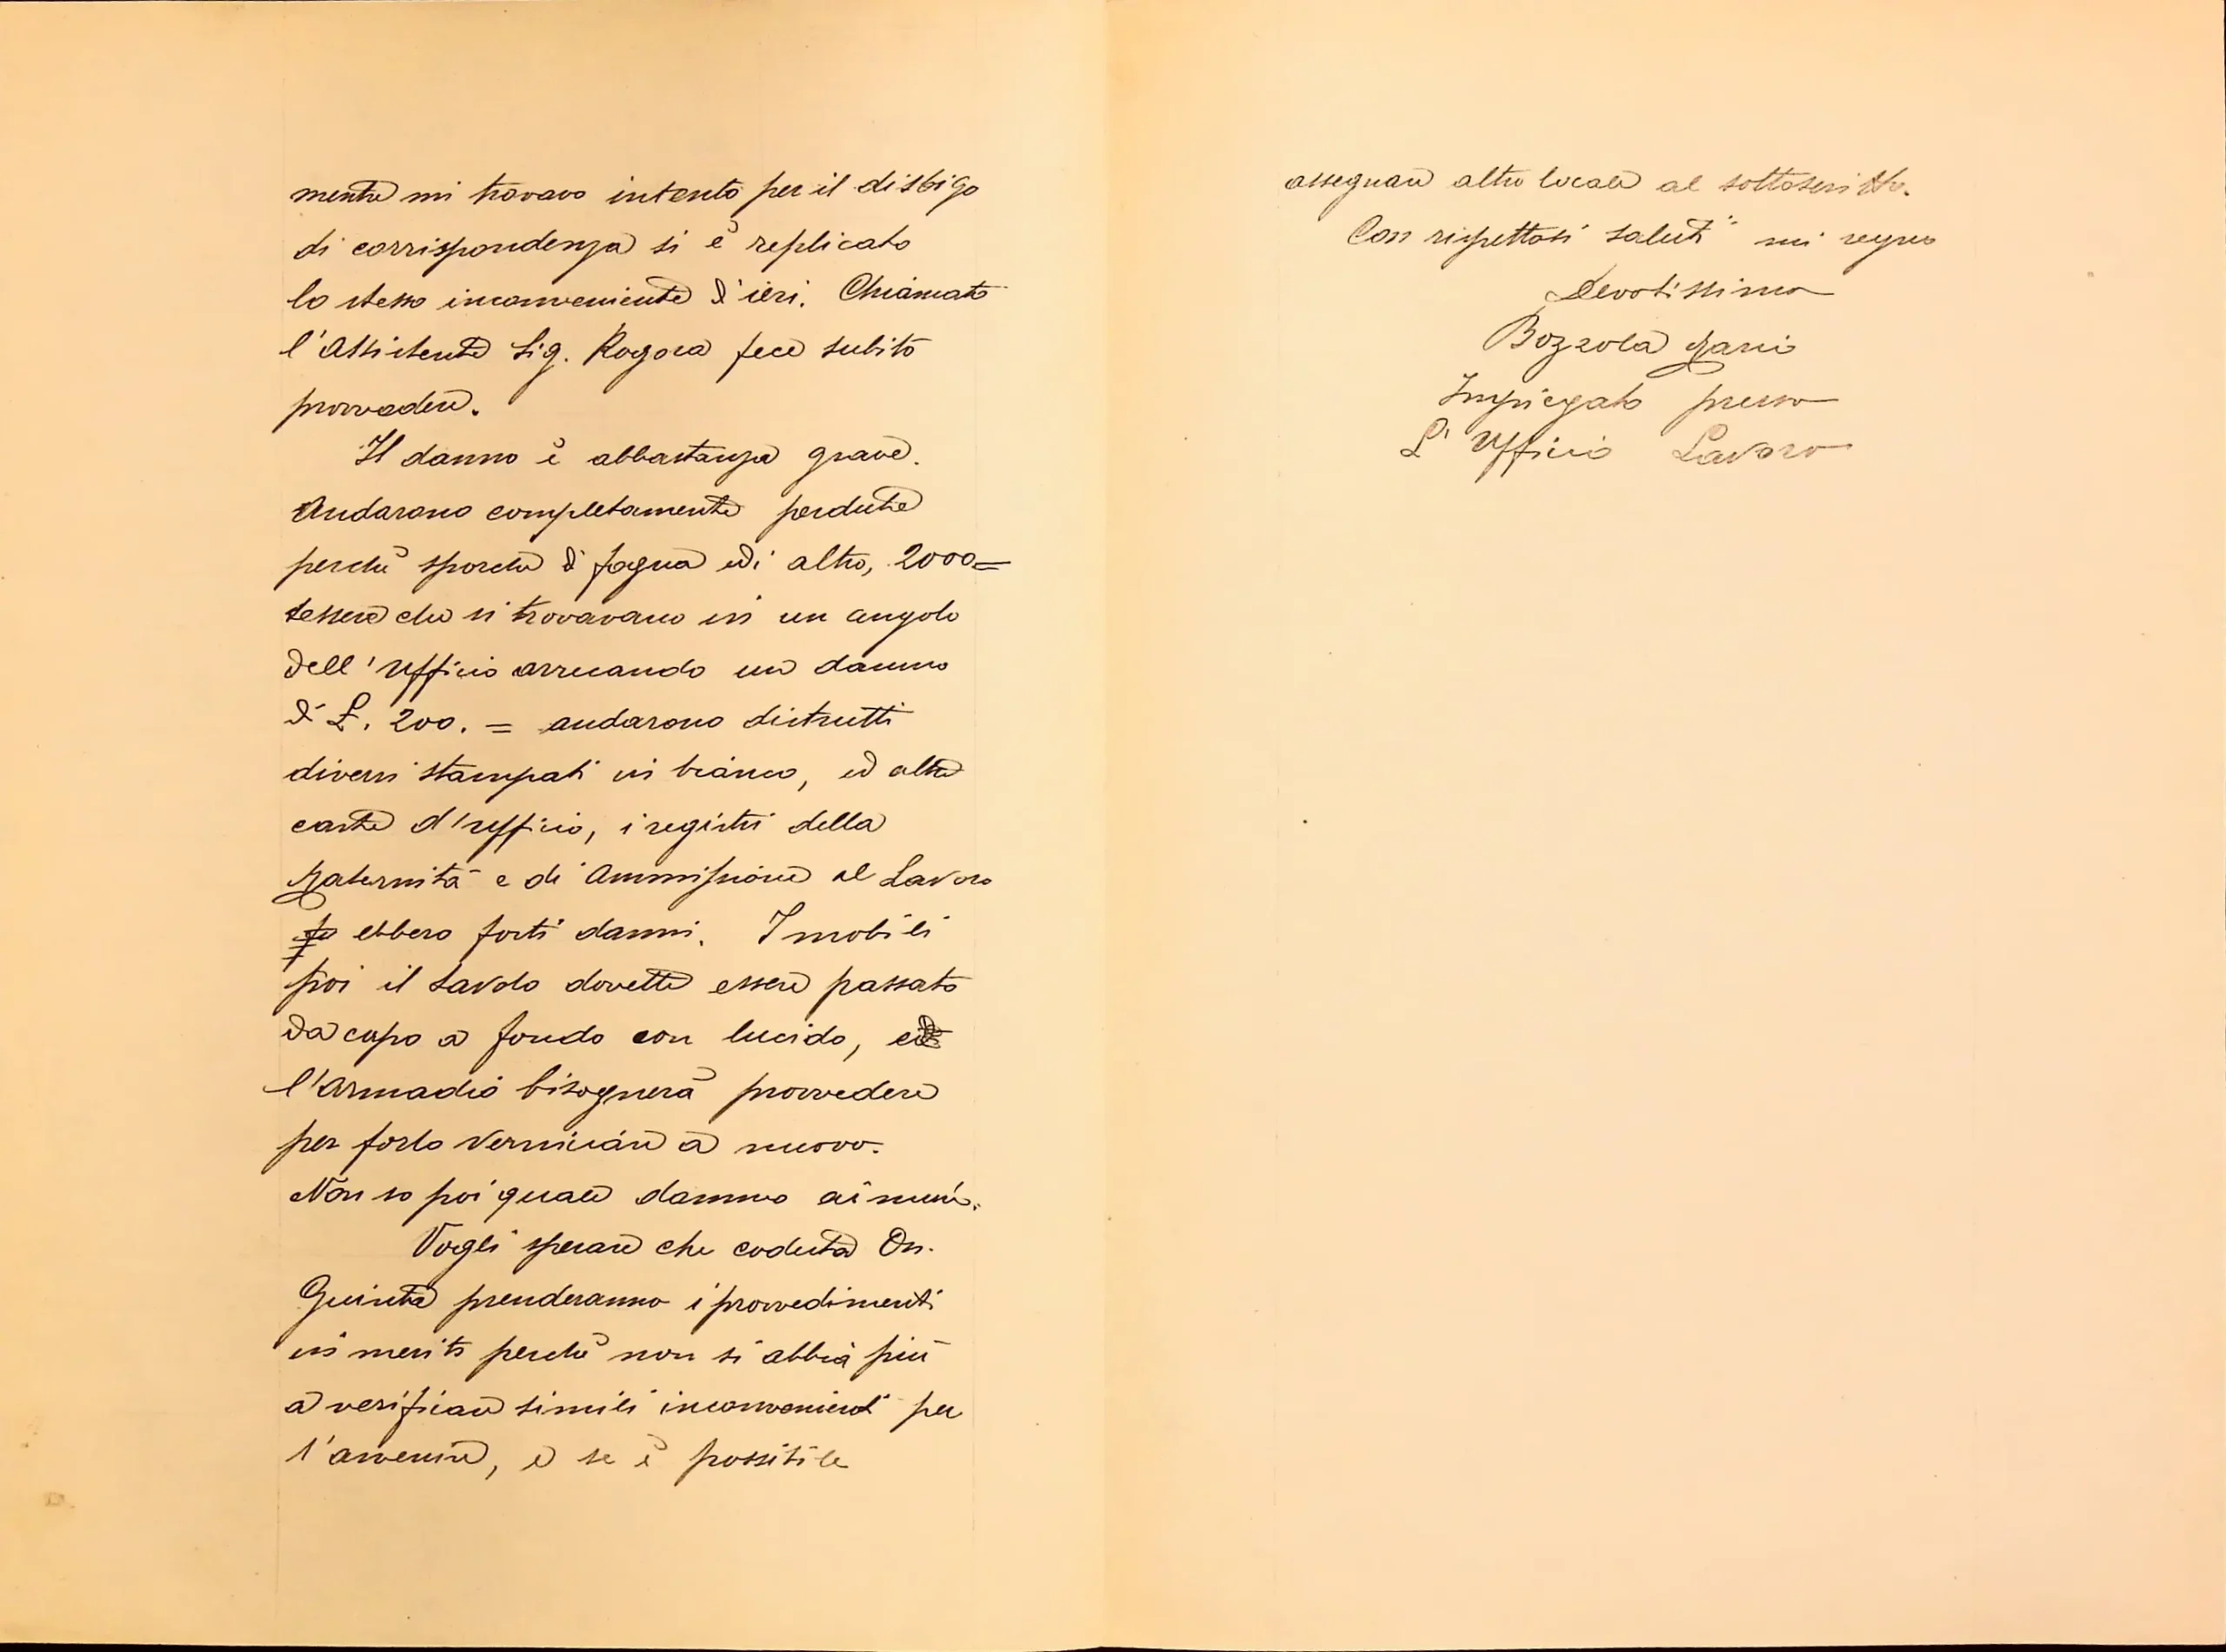 mentre mi trovavo intento per il disbrigo
di corrispondenza si è replicato
lo stesso inconveniente d'ieri. Chiamato
l'Assistente Sig. Rogora fece subito
provvadere.
Il danno è abbastanza grave.
Andarano completamente perdute
perchè sporche di fogna e di altro, 2000=
tessere che si trovavano in un angolo
dell'Ufficio arrecando un danno
di £. 200. = andarono distrutti
diversi stampati in bianco, ed altre
carte d'ufficio, i registri della
Maternità e di Ammissione al Lavoro
ebbero forti danni. I mobili
poi il tavolo dovette essere passato
da capo a fondo con lucido, ed
l'armadio bisognerà provvedere
per farlo verniciare a nuovo.
Non so poi quale danno ai muri.
Vogli sperare che codesta On.
Giunta prenderanno i provvedimenti
in merito perchè non si abbia più
a verificare simili inconvenienti per
l'avvenire, e se è possibile
assegnare altro locale al sottoscritto.
Con rispettosi saluti mi segno
Devotissimo
Bozzola Mario
Impiegato presso
L'Ufficio Lavoro